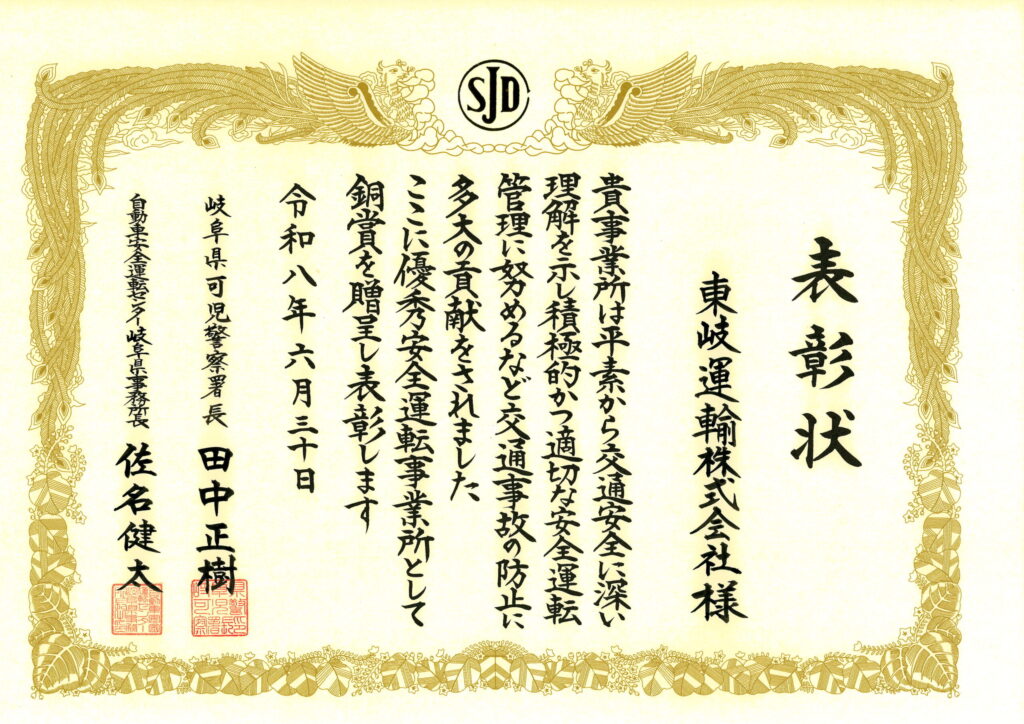 SJD
表彰状
東岐運輸株式会社様
貴事業所は平素から交通安全に深い
理解を示し積極的かつ適切な安全運転
管理に努めるなど交通事故の防止に
多大の貢献をされました
ここに優秀安全運転事業所として
銅賞を贈呈し表彰します
令和八年六月三十日
岐阜県可児警察署長 田中正樹
自動車安全運転センター岐阜県事務所長 佐名健太